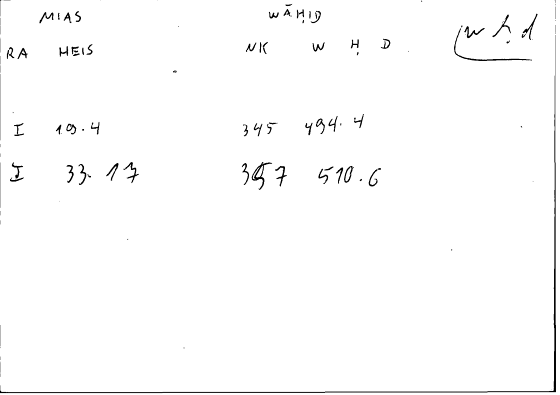 MIAS WĀḤID
RA HEIS NK W Ḥ D
w ḥ d
I 19.4 345 494.4
I 33.17 357 510.6